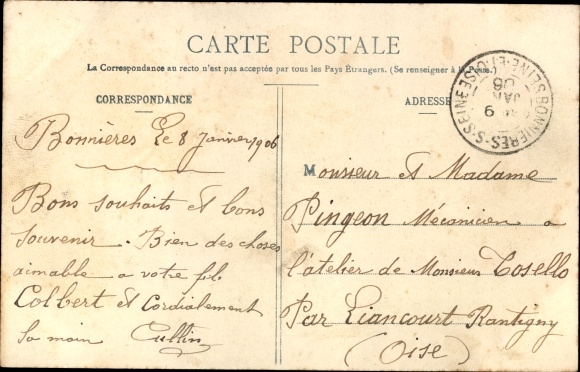 CARTE POSTALE
La Correspondance au recto n'est pas acceptée par tous les Pays Étrangers. (Se renseigner à la Poste.)
CORRESPONDANCE
ADRESSE
BONNIERES-S-SEINE
SEINE-ET-OISE
9
JAN
06
Bonnières Le 8 Janvier 1906
Bons souhaits et bons
souvenir. Bien des choses
aimable a votre fils
Colbert et Cordialement
la main Cullin
Monsieur et Madame
Pingeon Mécanicien a
l'atelier de Monsieur Tosello
Par Liancourt Rantigny
(Oise)